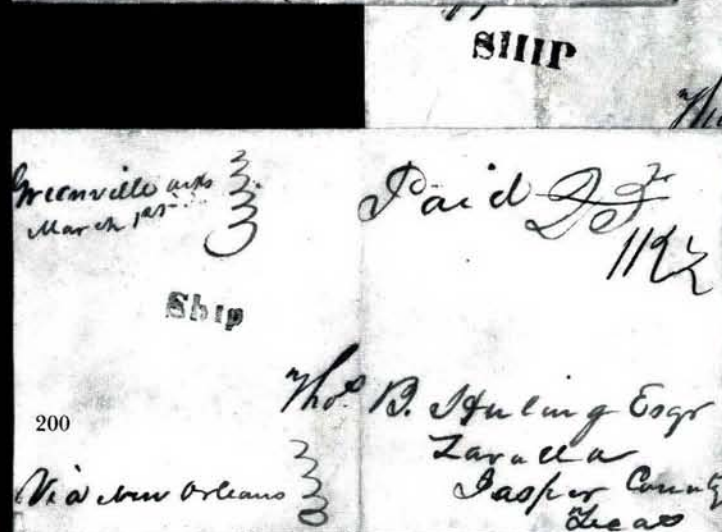 SHIP
Greenville arks
March 1st
Paid 25
Ship
200
Thos. B. Huling Esqr
Zavalla
Jasper County
Texas
Via New Orleans